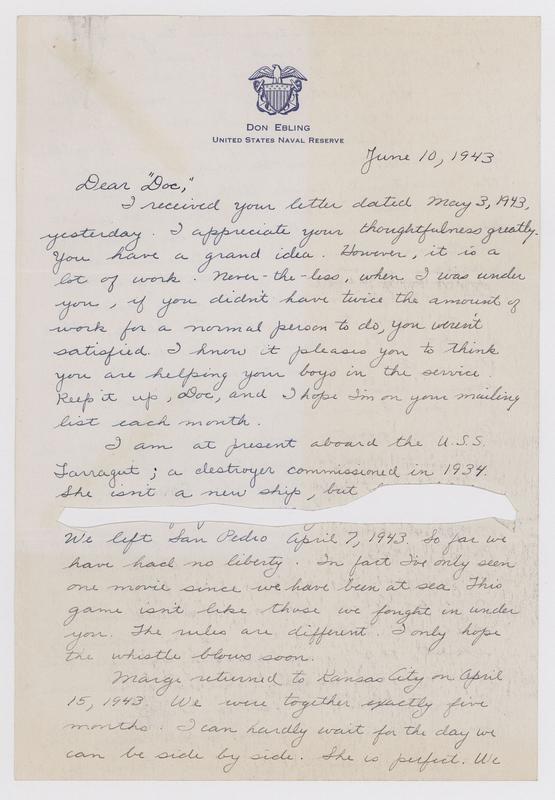 Don Ebling
United States Naval Reserve
June 10, 1943
Dear "Doc,"
I received your letter dated May 3, 1943,
yesterday. I appreciate your thoughtfulness greatly.
You have a grand idea. However, it is a
lot of work. Never-the-less, when I was under
you, if you didn't have twice the amount of
work for a normal person to do, you weren't
satisfied. I know it pleases you to think
you are helping your boys in the service.
Keep it up, Doc, and I hope I'm on your mailing
list each month.
I am at present aboard the U.S.S.
Farragut; a destroyer commissioned in 1934.
She isn't a new ship, but
We left San Pedro April 7, 1943. So far we
have had no liberty. In fact I've only seen
one movie since we have been at sea. This
game isn't like those we fought in under
you. The rules are different. I only hope
the whistle blows soon.
Marge returned to Kansas City on April
15, 1943. We were together exactly five
months. I can hardly wait for the day we
can be side by side. She is perfect. We